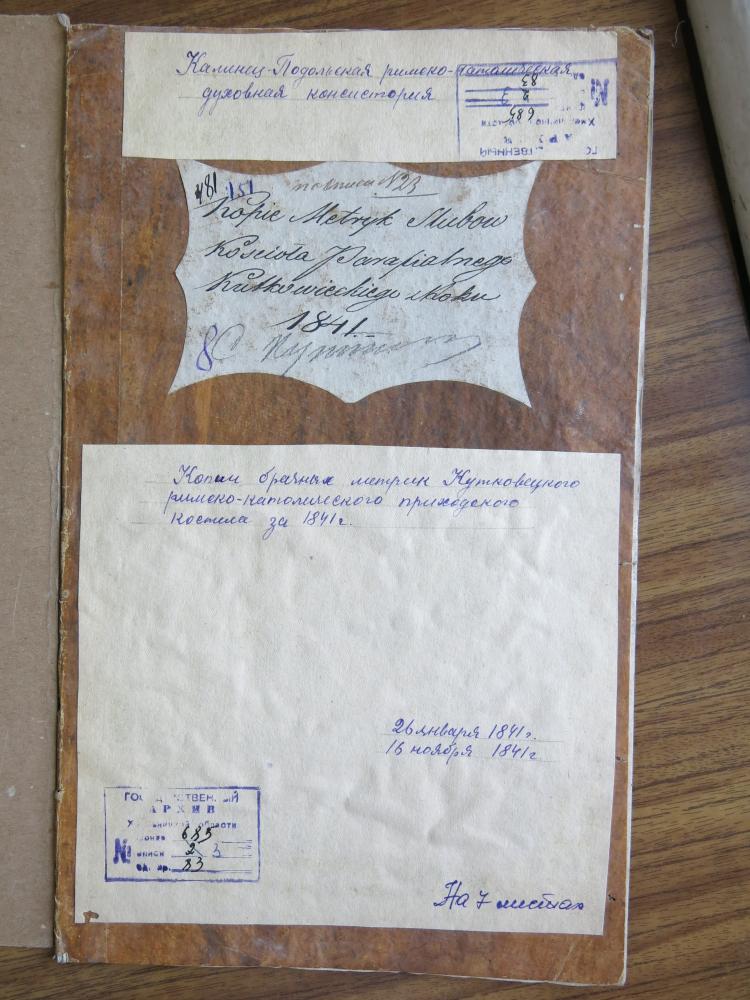 Каменец-Подольская римско-католическая
духовная консистория
481 151 по описи N23
Kopie Metryk Ślubow
Kościoła Parafialnego
Kutkowieckiego z Roku
1841
8
Копии брачных метрик Кутковецкого
римско-католического приходского
костела за 1841 г.
26 января 1841 г.
16 ноября 1841 г
ГОСУДАРСТВЕННЫЙ
АРХИВ
Хмельницкой области
фонда 685
№ описи 2 3
ед. хр. 83
На 7 листах